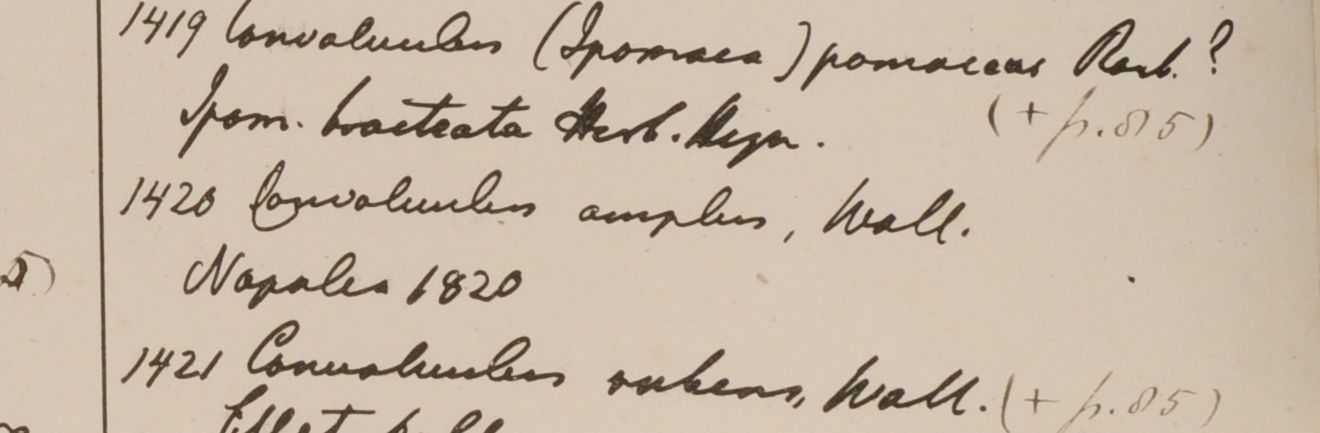 1419 Convolvulus (Ipomaea) pomaceus Roxb.?
Ipom. bracteata Herb. Heyn. (+ p. 85)
1420 Convolvulus amplus, Wall.
Napalea 1820
1421 Convolvulus rubens, Wall. (+ p. 85)